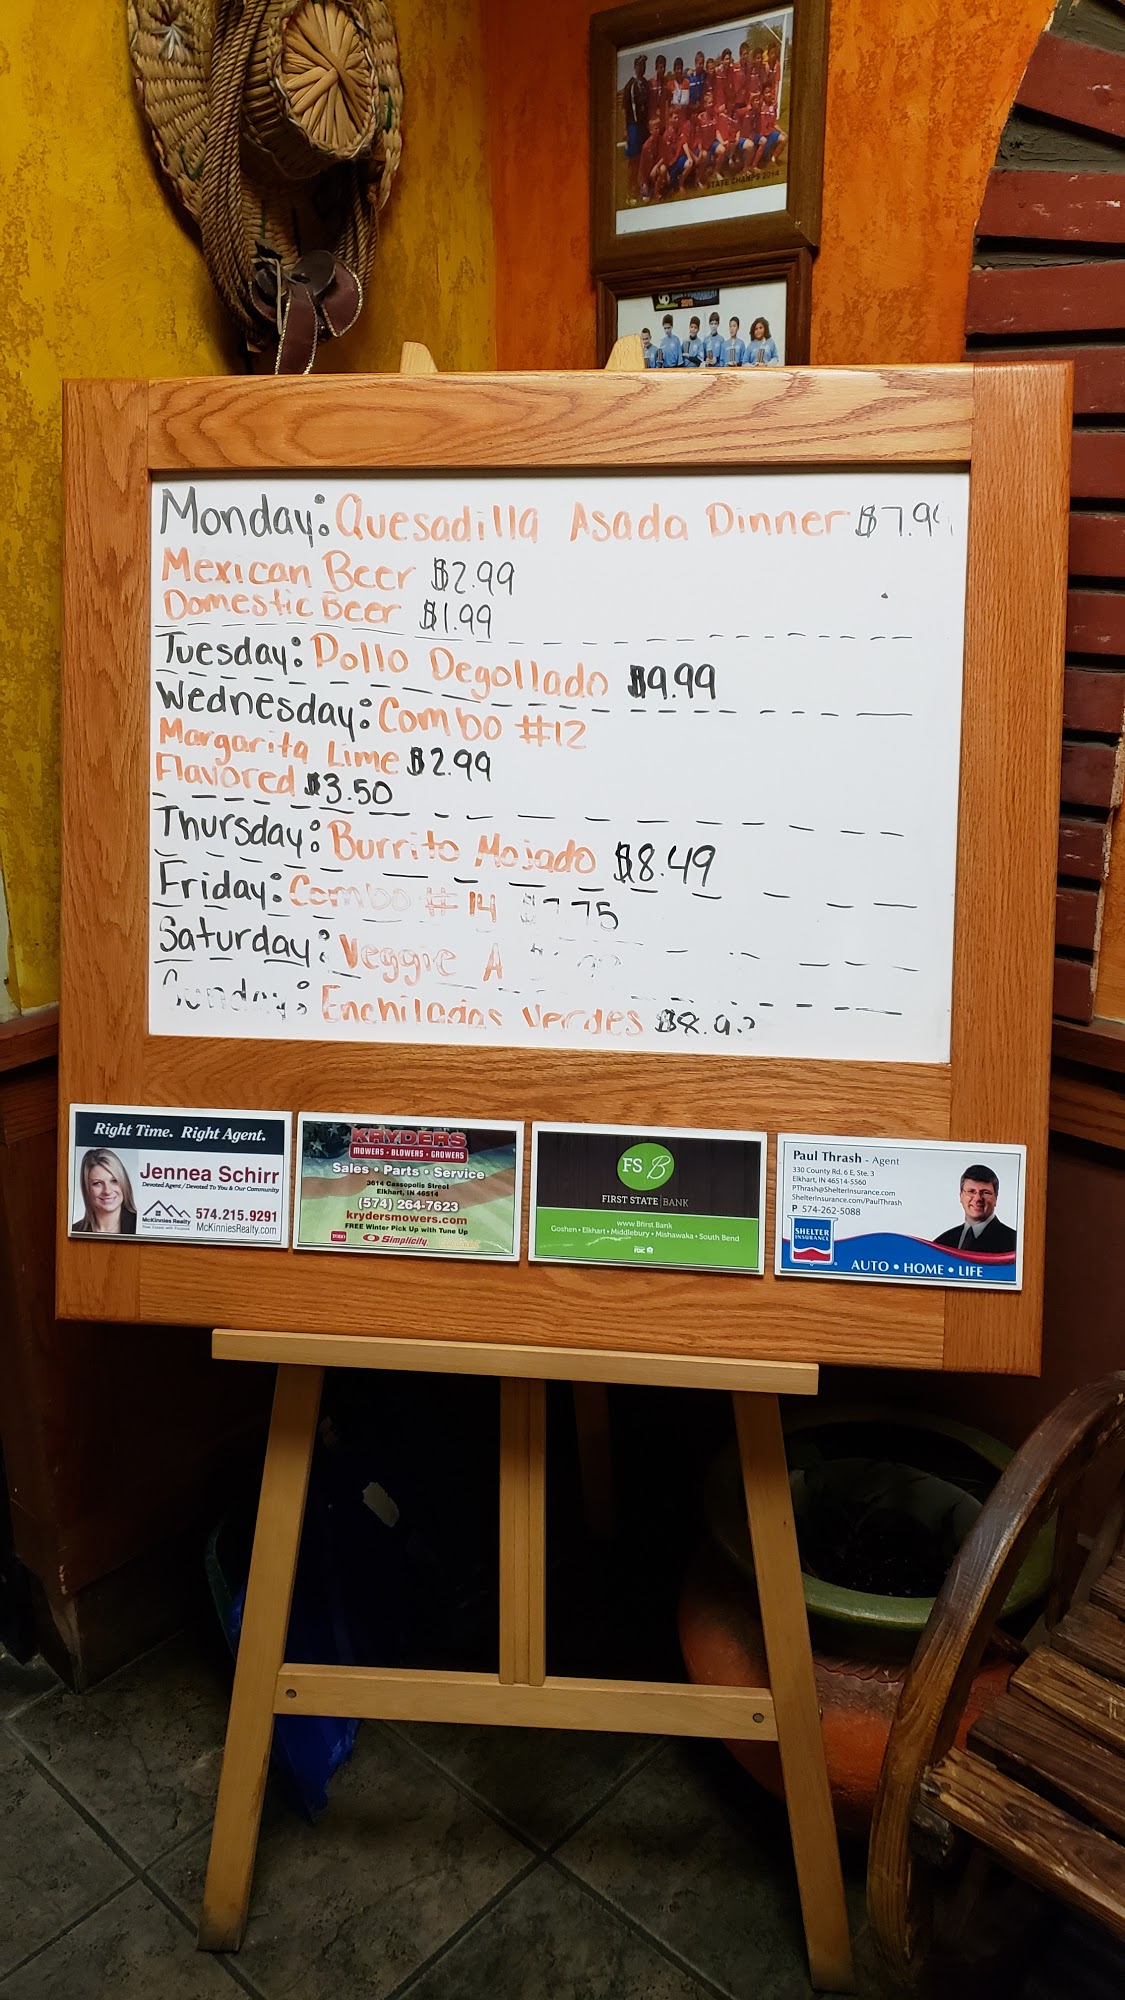 STATE CHAMPS 2014
2011
Monday: Quesadilla Asada Dinner
Mexican Beer $2.99
Domestic Beer $1.99
Tuesday: Pollo Degollado $9.99
Wednesday: Combo #12
Margarita Lime $2.99
Flavored $3.50
Thursday: Burrito Mojado $8.49
Friday: Combo #14 $7.75
Saturday: Veggie A
Sunday: Enchiladas Verdes
Right Time. Right Agent.
Jennea Schirr
Devoted Agent / Devoted To You & Our Community
McKinnies Realty
574.215.9291
McKinniesRealty.com
KRYDERS
MOWERS • BLOWERS • GROWERS
Sales • Parts • Service
3614 Cassopolis Street
Elkhart, IN 46514
(574) 264-7623
krydersmowers.com
FREE Winter Pick Up with Tune Up
TORO Simplicity
FS B
FIRST STATE BANK
www.Bfirst.Bank
Goshen • Elkhart • Middlebury • Mishawaka • South Bend
FDIC
Paul Thrash - Agent
330 County Rd. 6 E, Ste. 3
Elkhart, IN 46514-5560
PThrash@ShelterInsurance.com
ShelterInsurance.com/PaulThrash
P 574-262-5088
SHELTER INSURANCE
AUTO • HOME • LIFE